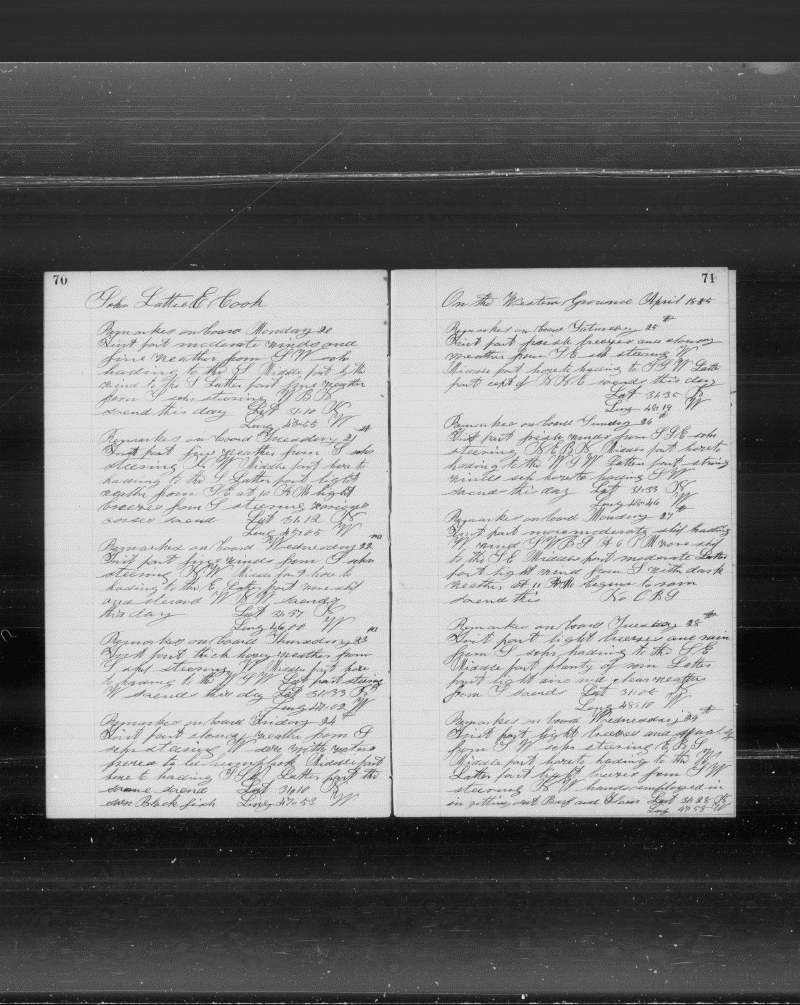 70
Schr Lottie E Cook
Remarkes on board Monday 20
First part moderate winds and
fine weather from S W schr
heading to the S Middle part by the
wind to the S Latter part fine weather
from S schr steering W B N
so end this day Lat 31-10 N
Long W
Remarkes on board Tuesday 21 st
First part fine weather from S schr
steering W Middle part hove to
heading to the S Latter part light
weather from S E at 10 A M light
breezes from S steering various
corses so end Lat 31-12 N
Long 45-05 W
Remarkes on board Wednesday 22 nd
First part fine winds from S schr
steering N W Middle part hove to
heading to the E Latter part wore ship
and steared W N W so ends
this day Lat 31-37 N
Long 46-00 W
Remarkes on board Thursday 23 rd
First part thick hazey weather from
S schr steering W Middle part hove
to heading to the W S W Last part steering
W so ends this day Lat 31-33 N
Long 47-02 W
Remarkes on board Friday 24 th
First part cloudy weather from S
schr steering W
Middle part
hove to heading S S W Latter part the
same so end Lat 31-10 N
saw Black fish Long 47-53 W
71
On the Western Ground April 1885
Remarkes on board Saturday 25 th
First part fresh breezes and cloudy
weather from S E sch steering W
Middle part hove to heading to S S W Latter
part cept of N N E so ends this day
Lat 31-35 N
Long 48-19 W
Remarkes on board Sunday 26 th
First part fresh winds from S S E schr
steering N E B N Middle part hove to
heading to the W S W Latter part strong
winds sch hove to heading S W
so end this day Lat 31-33 N
Long 48-46 W
Remarkes on board Monday 27 th
First part more moderate ship heading
W wind S W B S at 6 P M wore ship
to the S E Middle part moderate Latter
part light wind from S with dark
weather at 11 A M begune to rain
so end this No O B S
Remarkes on board Tuesday 28 th
First part light breezes and rain
from S schr heading to the S E
Middle part planty of rain Latter
part light airs and clear weather
from S so end Lat 31-05 N
Long 48-10 W
Remarkes on board Wednesday 29 th
First part light breezes and squally
from S W schr steering E B S
Middle part hove to heading to the W
Latter part light breezes from S W
steering N W hands employed in
in gitting out Beef and Flour Lat 31-25 N
Long 47-58 W